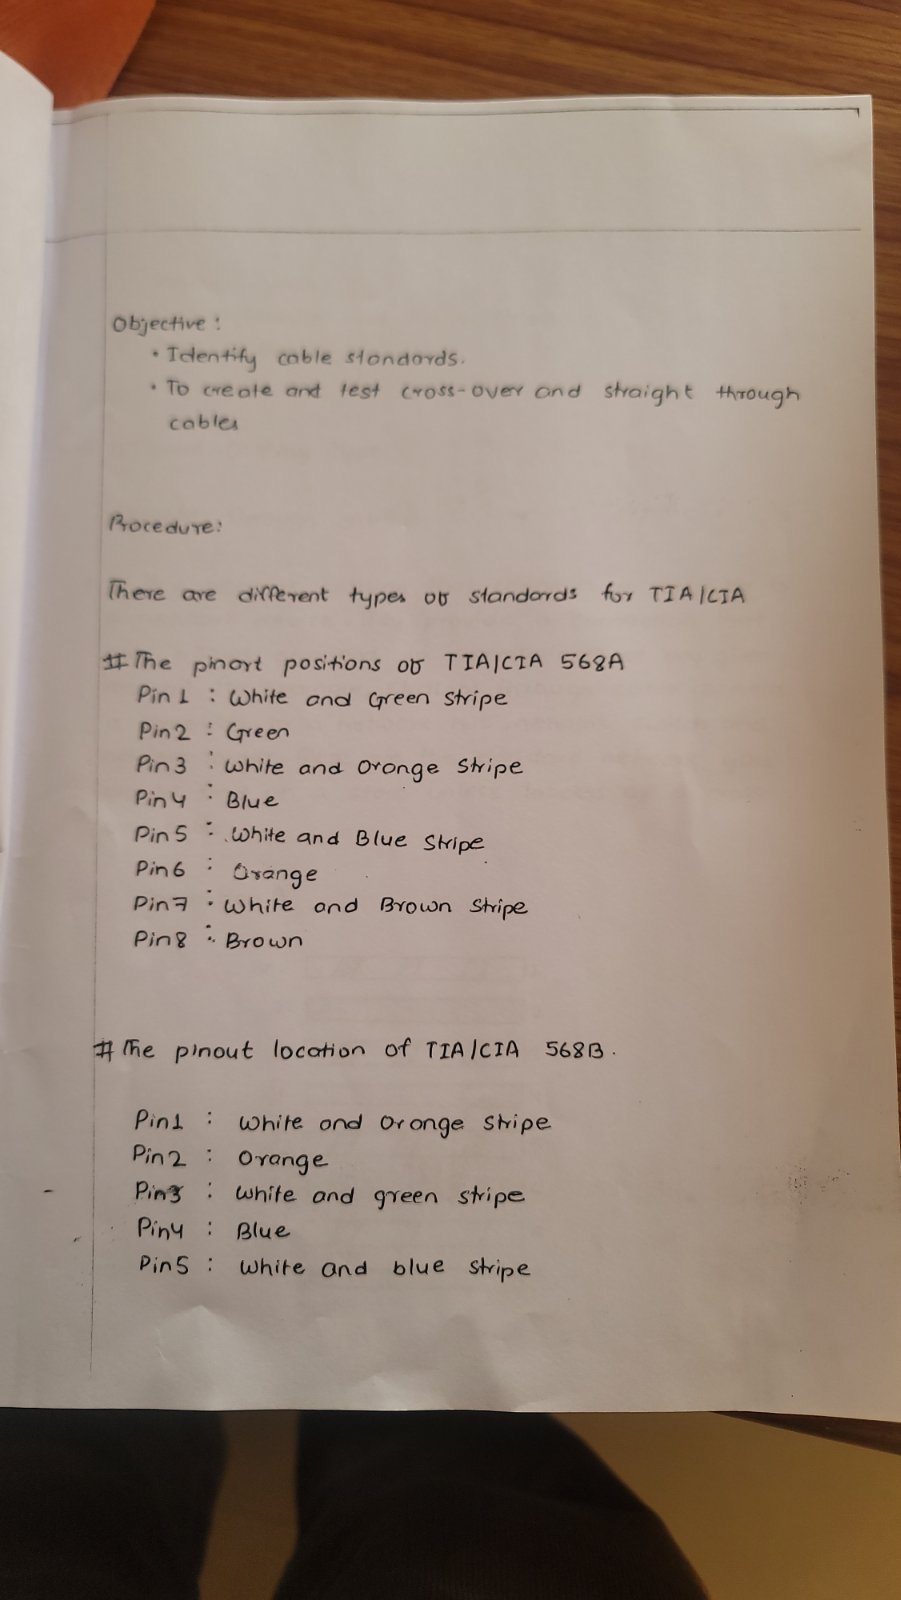 Objective :
• Identify cable standards.
• To create and test cross-over and straight through
cables
Procedure:
There are different types of standards for TIA/CIA
# The pinort positions of TIA/CIA 568A
Pin 1 : White and Green Stripe
Pin2 : Green
Pin3 : White and Orange Stripe
Pin4 : Blue
Pin5 : White and Blue Stripe
Pin6 : Orange
Pin7 : White and Brown Stripe
Pin8 : Brown
# The pinout location of TIA/CIA 568B.
Pin1 : White and Orange Stripe
Pin2 : Orange
Pin3 : White and green stripe
Pin4 : Blue
Pin5 : White and blue stripe